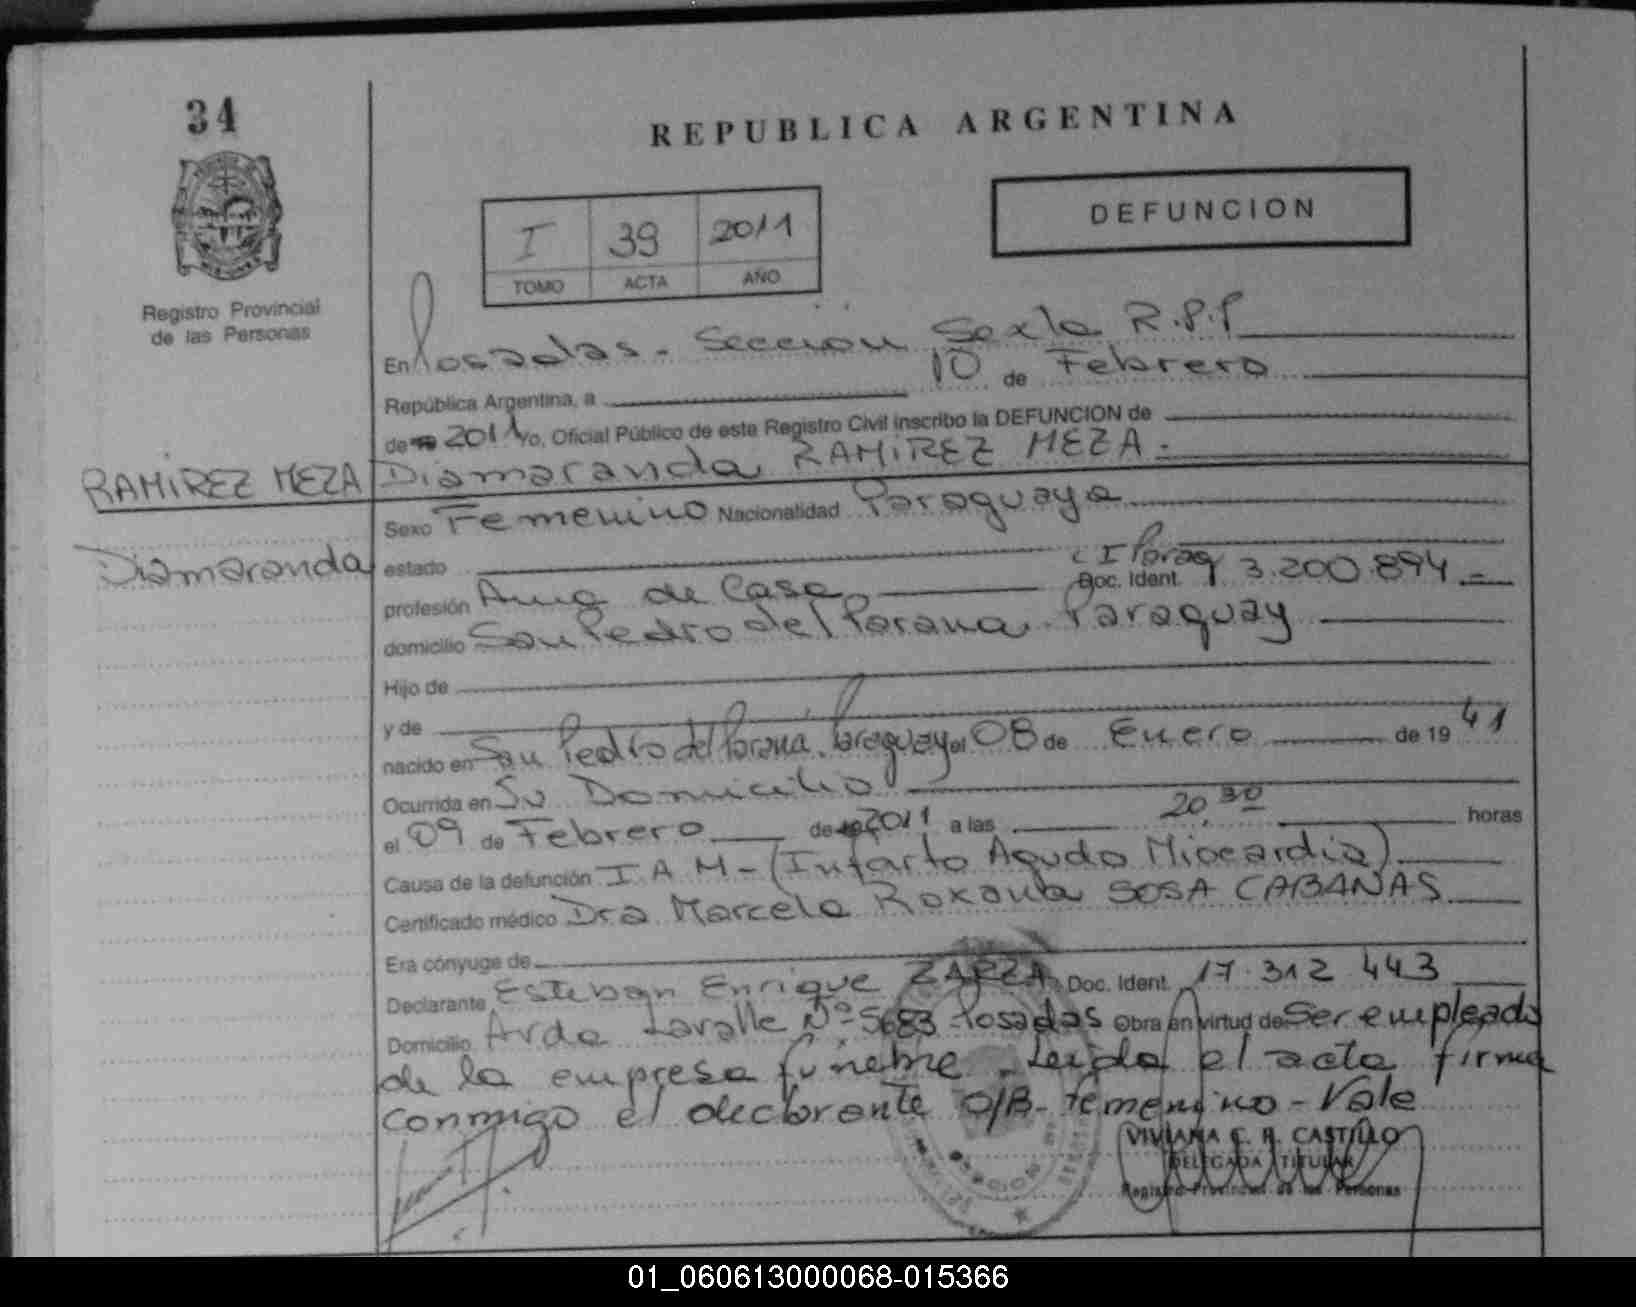 34
REPUBLICA ARGENTINA
DEFUNCION
I 39 2011
TOMO ACTA AÑO
Registro Provincial
de las Personas
En Posadas - Sección Sexta R.P.P
República Argentina, a 10 de Febrero
de 2011 Yo, Oficial Público de este Registro Civil inscribo la DEFUNCION de
RAMIREZ MEZA Diamaranda RAMIREZ MEZA.-
Sexo Femenino Nacionalidad Paraguaya
Diamaranda
estado C I Parag
profesión Ama de Casa Doc. Ident. 3.200.894.-
domicilio San Pedro del Parana Paraguay
Hijo de
y de
nacido en San Pedro del Parana, Paraguay el 08 de Enero de 19 41
Ocurrida en Su Domicilio
el 09 de Febrero de 2011 a las 20,30 horas
Causa de la defunción I A M - (Infarto Agudo Miocardio)
Certificado médico Dra Marcela Roxana SOSA CABANAS
Era cónyuge de
Declarante Esteban Enrique ZARZA Doc. Ident. 17.312 443
Domicilio Avda Lavalle Nº 5683 Posadas Obra en virtud de Ser empleado
de la empresa fúnebre. Leida el acta firma
conmigo el declarante O/B- Femenino - Vale
VIVIANA C. R. CASTILLO
DELEGADA TITULAR
Registro Provincial de las Personas
01_060613000068-015366